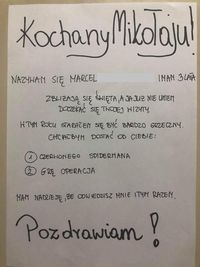 Kochany Mikołaju!
NAZYWAM SIĘ MARCEL I MAM 3 LATA
ZBLIŻAJĄ SIĘ ŚWIĘTA, A JA JUŻ NIE UMIEM
DOCZEKAĆ SIĘ TWOJEJ WIZYTY.
W TYM ROKU STARAŁEM SIĘ BYĆ BARDZO GRZECZNY.
CHCIAŁBYM DOSTAĆ OD CIEBIE:
1 CZERWONEGO SPIDERMANA
2 GRĘ OPERACJA
MAM NADZIEJĘ, ŻE ODWIEDZISZ MNIE I TYM RAZEM.
Pozdrawiam!